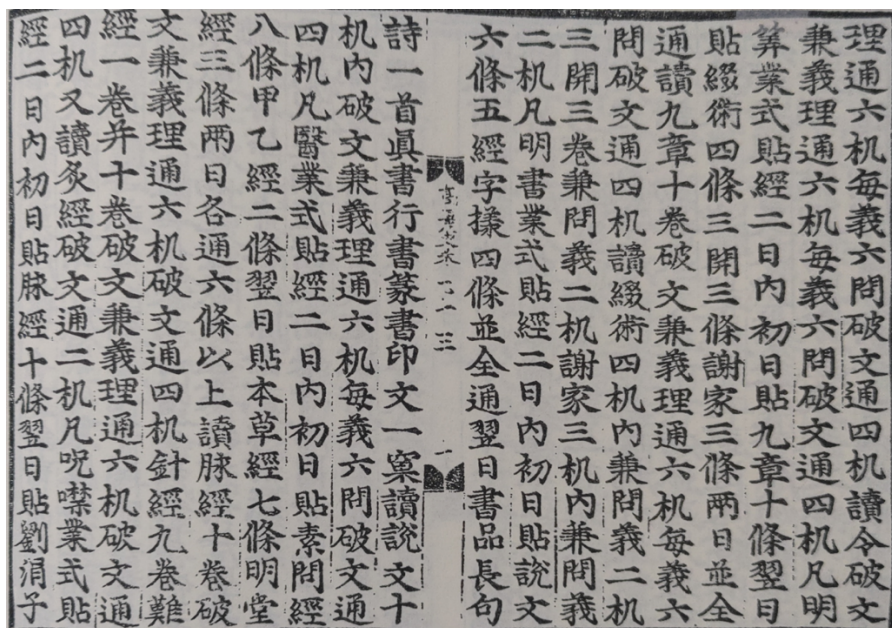 理通六机每義六問破文通四机讀令破文
兼義理通六机每義六問破文通四机凡明
筭業式貼經二日內初日貼九章十條翌日
貼綴術四條三開三條謝家三條兩日並全
通讀九章十卷破文兼義理通六机每義六
問破文通四机讀綴術四机內兼問義二机
三開三卷兼問義二机謝家三机內兼問義
二机凡明書業式貼經二日內初日貼說文
六條五經字㨾四條並全通翌日書品長句
詩一首眞書行書篆書印文一窠讀說文十
机內破文兼義理通六机每義六問破文通
四机凡醫業式貼經二日內初日貼素問經
八條甲乙經二條翌日貼本草經七條明堂
經三條兩日各通六條以上讀脉經十卷破
文兼義理通六机破文通四机針經九卷難
經一卷并十卷破文兼義理通六机破文通
四机又讀灸經破文通二机凡呪噤業式貼
經二日內初日貼脉經十條翌日貼劉涓子